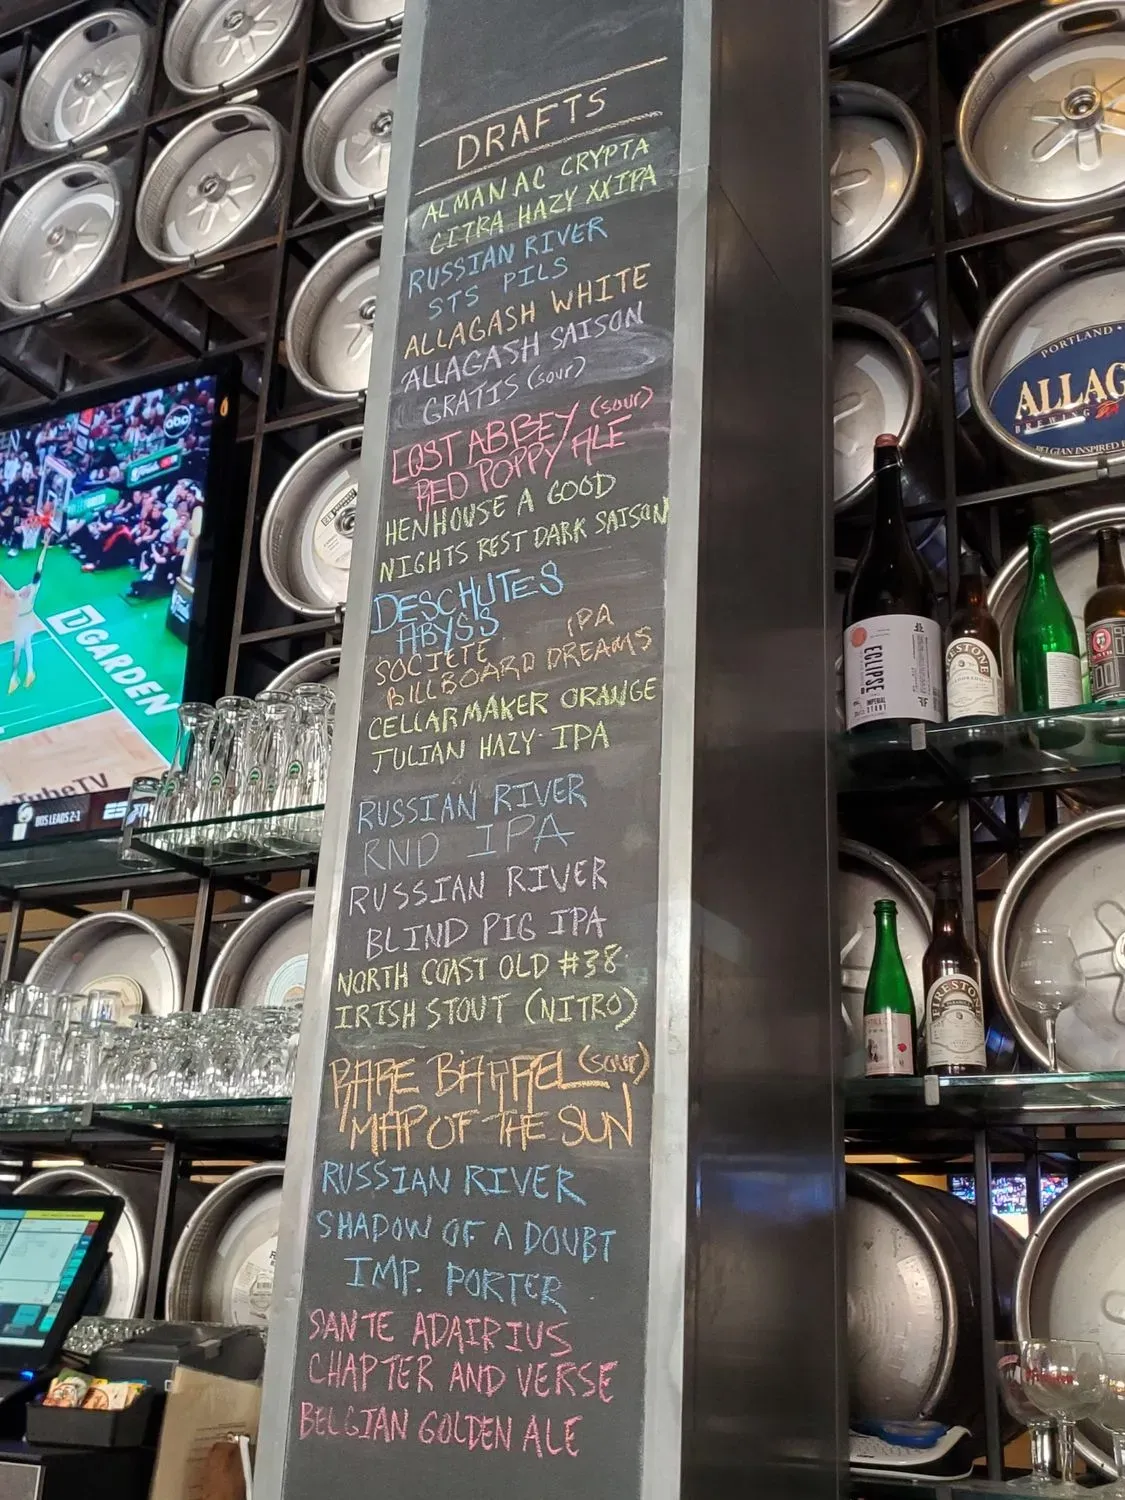 DRAFTS
ALMANAC CRYPTA
CITRA HAZY XXIPA
RUSSIAN RIVER
STS PILS
ALLAGASH WHITE
ALLAGASH SAISON
GRATIS (sour)
LOST ABBEY (sour)
RED POPPY ALE
HENHOUSE A GOOD
NIGHTS REST DARK SAISON
DESCHUTES
ABYSS
SOCIETE IPA
BILLBOARD DREAMS
CELLARMAKER ORANGE
JULIAN HAZY IPA
RUSSIAN RIVER
RND IPA
RUSSIAN RIVER
BLIND PIG IPA
NORTH COAST OLD #38
IRISH STOUT (NITRO)
RARE BARREL (sour)
MAP OF THE SUN
RUSSIAN RIVER
SHADOW OF A DOUBT
IMP. PORTER
SANTE ADAIRIUS
CHAPTER AND VERSE
BELGIAN GOLDEN ALE
abc
D GARDEN
TubeTV
BOS LEADS 2-1
PORTLAND
ALLAG
BREWING
BELGIAN INSPIRED
ECLIPSE
IMPERIAL
STOUT
FIRESTONE
FIRESTONE